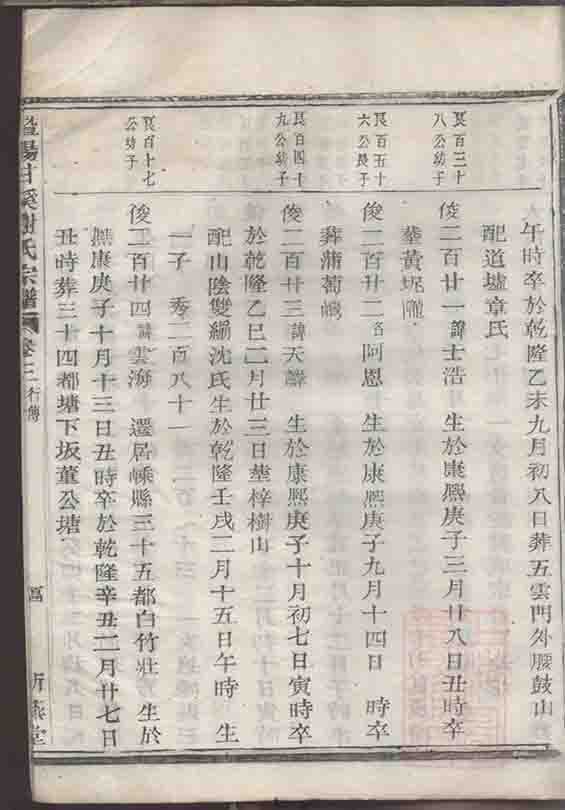 午時卒於乾隆乙未九月初八日葬五雲門外腰鼓山
配道墟章氏
良百三十八公幼子
俊二百廿一諱士浩 生於康熙庚子三月廿八日丑時卒
葬黃坭隴
良百五十六公長子
俊二百廿二名阿恩 生於康熙庚子九月十四日 時卒
葬蒲萄峨
良百四十九公幼子
俊二百廿三諱天 生於康熙庚子十月初七日寅時卒
於乾隆乙巳二月廿三日葬梓樹山
配山陰雙 沈氏生於乾隆壬戌二月十五日午時 生
一子 秀二百八十一
良百十七公幼子
俊二百廿四諱雲海 遷居嵊縣三十五都白竹莊 生於
康庚子十月十三日丑時卒於乾隆辛丑二月廿七日
丑時葬三十四都塘下坂董公塘
暨陽甘溪謝氏宗譜 卷三 行傳